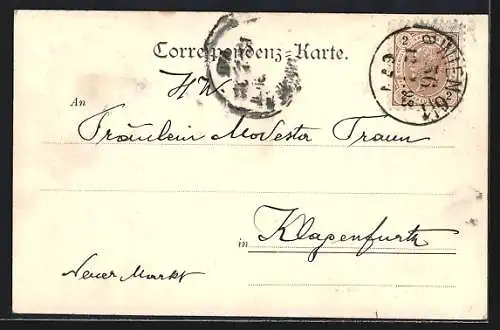 Correspondenz-Karte.
H. W.
An
Fräulein Modesta Traun
in Klagenfurth
Neuer Markt